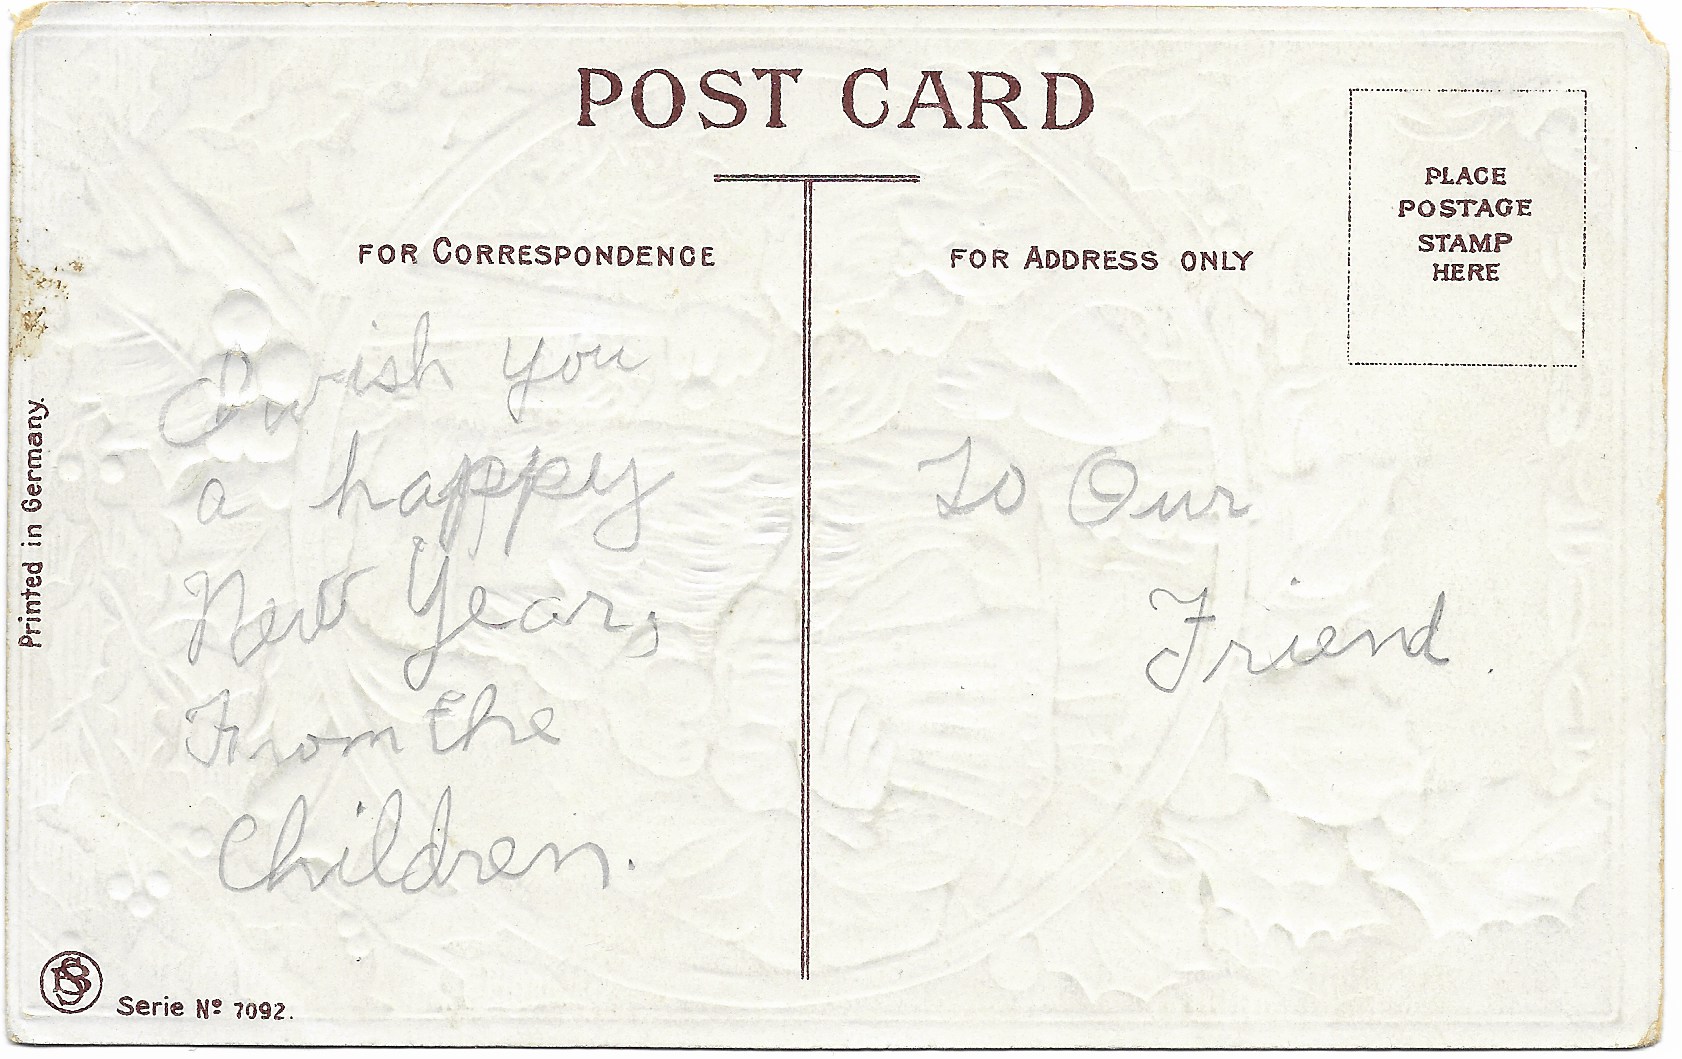 POST CARD
FOR CORRESPONDENCE
I wish you
a happy
New Year,
From the
Children.
FOR ADDRESS ONLY
To Our
Friend.
PLACE
POSTAGE
STAMP
HERE
Printed in Germany.
Serie Nº 7092.